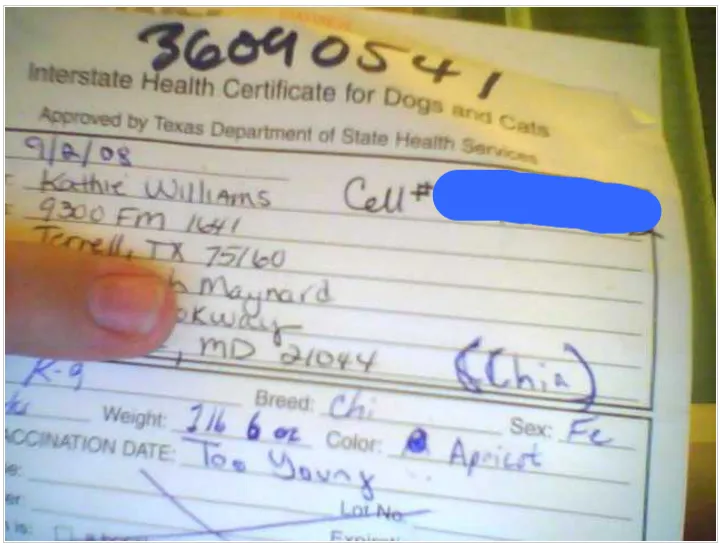 36090541
Interstate Health Certificate for Dogs and Cats
Approved by Texas Department of State Health Services
9/2/08
Kathie Williams Cell #
9300 Fm 1641
Terrell, TX 75160
h Maynard
okway
, MD 21044 (Chia)
K-9 Breed: Chi Sex: Fe
Weight: 1 lb 6 oz Color: Apricot
ACCINATION DATE: Too Young
Lot No